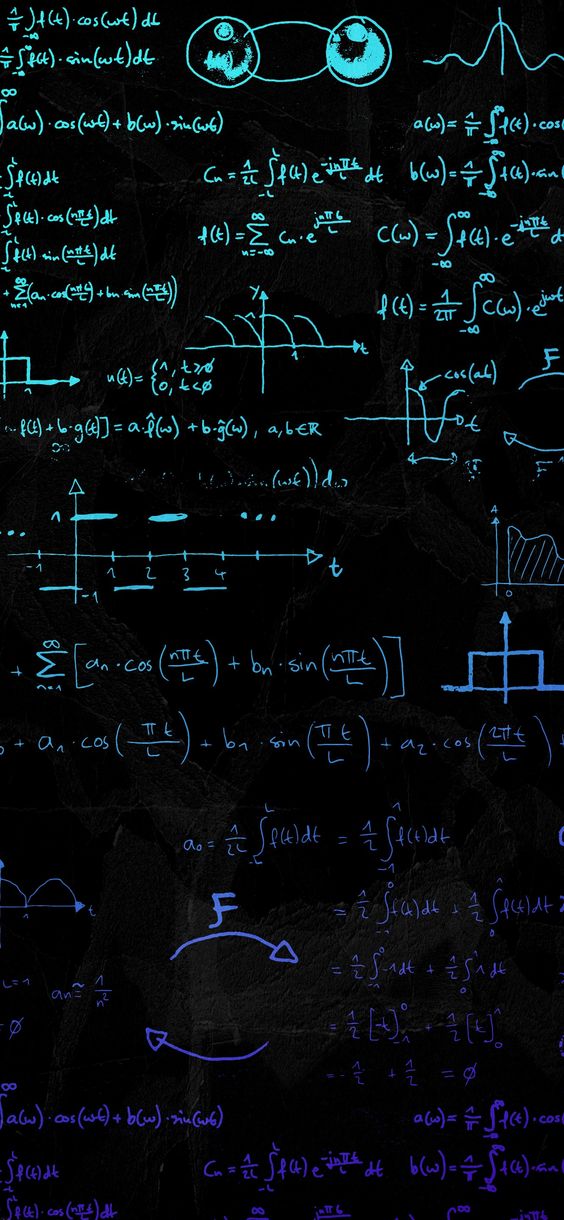 1/π ∫_{-∞} f(t)·cos(ωt)dt
1/π ∫_{-∞} f(t)·sin(ωt)dt
∫^{∞} a(ω)·cos(ωt)+b(ω)·sin(ωt)
a(ω)= 1/π ∫_{-∞}^{∞} f(t)·cos
∫_{-L}^{L} f(t)dt
Cn = 1/2L ∫_{-L}^{L} f(t) e^{-jnπt/L} dt
b(ω)= 1/π ∫_{-∞}^{∞} f(t)·sin
∫_{-L}^{L} f(t)·cos(nπt/L)dt
f(t) = Σ_{n=-∞}^{∞} Cn·e^{jnπt/L}
C(ω) = ∫_{-∞}^{∞} f(t)·e^{-jnπt/L} d
∫_{-L}^{L} f(t) sin(nπt/L)dt
+ Σ_{n=1}^{∞}(an·cos(nπt/L)+bn·sin(nπt/L))
f(t) = 1/2π ∫_{-∞}^{∞} C(ω)·e^{jωt}
y
1
1
t
u(t) = {1, t≥0
0, t<0
cos(at)
F
t
f(t)+b·g(t)] = a·f̂(ω) + b·ĝ(ω), a,b∈ℝ
∞
F⁻
(ωt))d
1
...
...
-1 1 2 3 4
t
-1
A
0
+ Σ_{n=1}^{∞} [an·cos(nπt/L) + bn·sin(nπt/L)]
+ a1·cos(πt/L) + b1·sin(πt/L) + a2·cos(2πt/L) +
a0 = 1/2L ∫_{-L}^{L} f(t)dt = 1/2 ∫_{-1}^{1} f(t)dt
1
t
F
= 1/2 ∫_{-1}^{0} f(t)dt + 1/2 ∫_{0}^{1} f(t)dt
L=1
an≈ 1/n²
= 1/2 ∫_{-1}^{0} -1dt + 1/2 ∫_{0}^{1} 1dt
= 0
= 1/2 [-t]_{-1}^{0} + 1/2 [t]_{0}^{1}
= -1/2 + 1/2 = 0
∫^{∞} a(ω)·cos(ωt)+b(ω)·sin(ωt)
a(ω)= 1/π ∫_{-∞}^{∞} f(t)·cos
∫_{-L}^{L} f(t)dt
Cn = 1/2L ∫_{-L}^{L} f(t) e^{-jnπt/L} dt
b(ω)= 1/π ∫_{-∞}^{∞} f(t)·sin
∫ f(t)·cos(nπt
∞
jnπt
∞